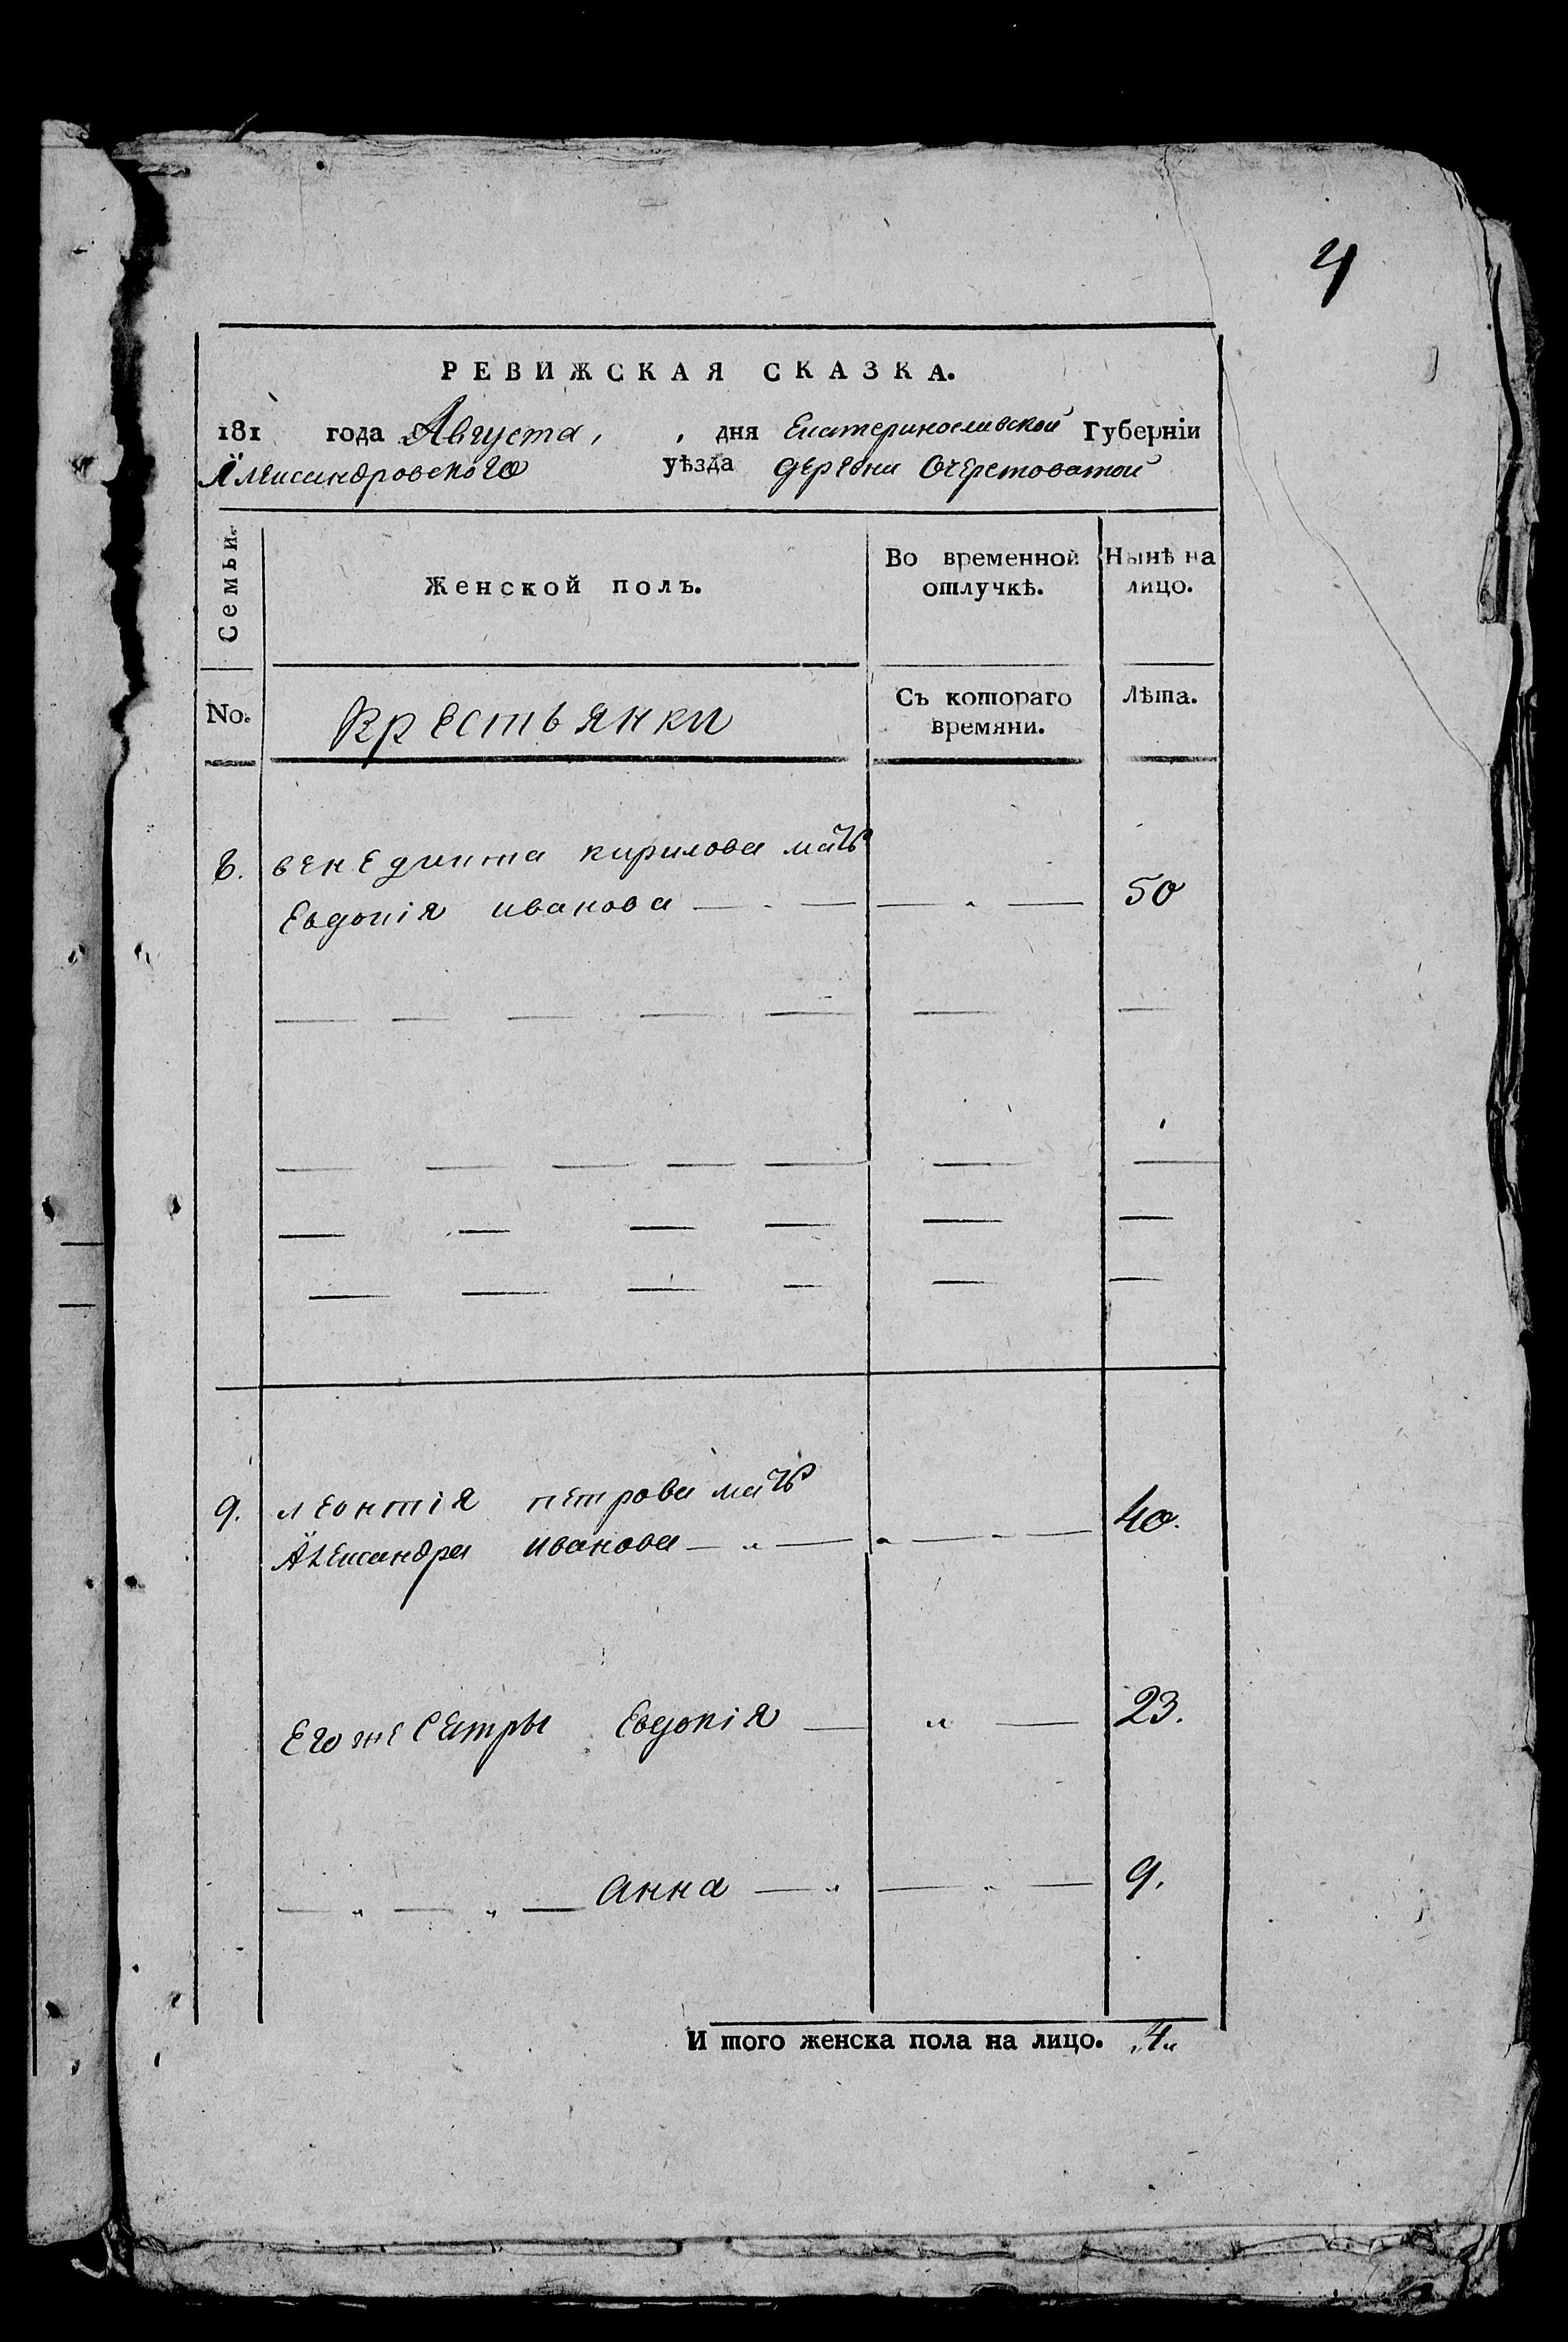 4
РЕВИЖСКАЯ СКАЗКА.
181 года Августа, , дня Екатеринославской Губерніи
Александровского уѣзда деревни Очеретоватой
Семьи. Женской полъ. Во временной отлучкѣ. Нынѣ на лицо.
No. Крестьянки Съ котораго времяни. Лѣта.
8. Венедикта Кирилова мать
Евдокія Иванова — " — — " — 50
— — — — — — —
— — — — — — —
— — — — — —
— — — — — —
9. Леонтія Петрова мать
Александра Иванова — " — " — " — 40.
Его же сестры Евдокія — " — 23.
— " — " — Анна — " — " — 9.
И того женска пола на лицо. „4„